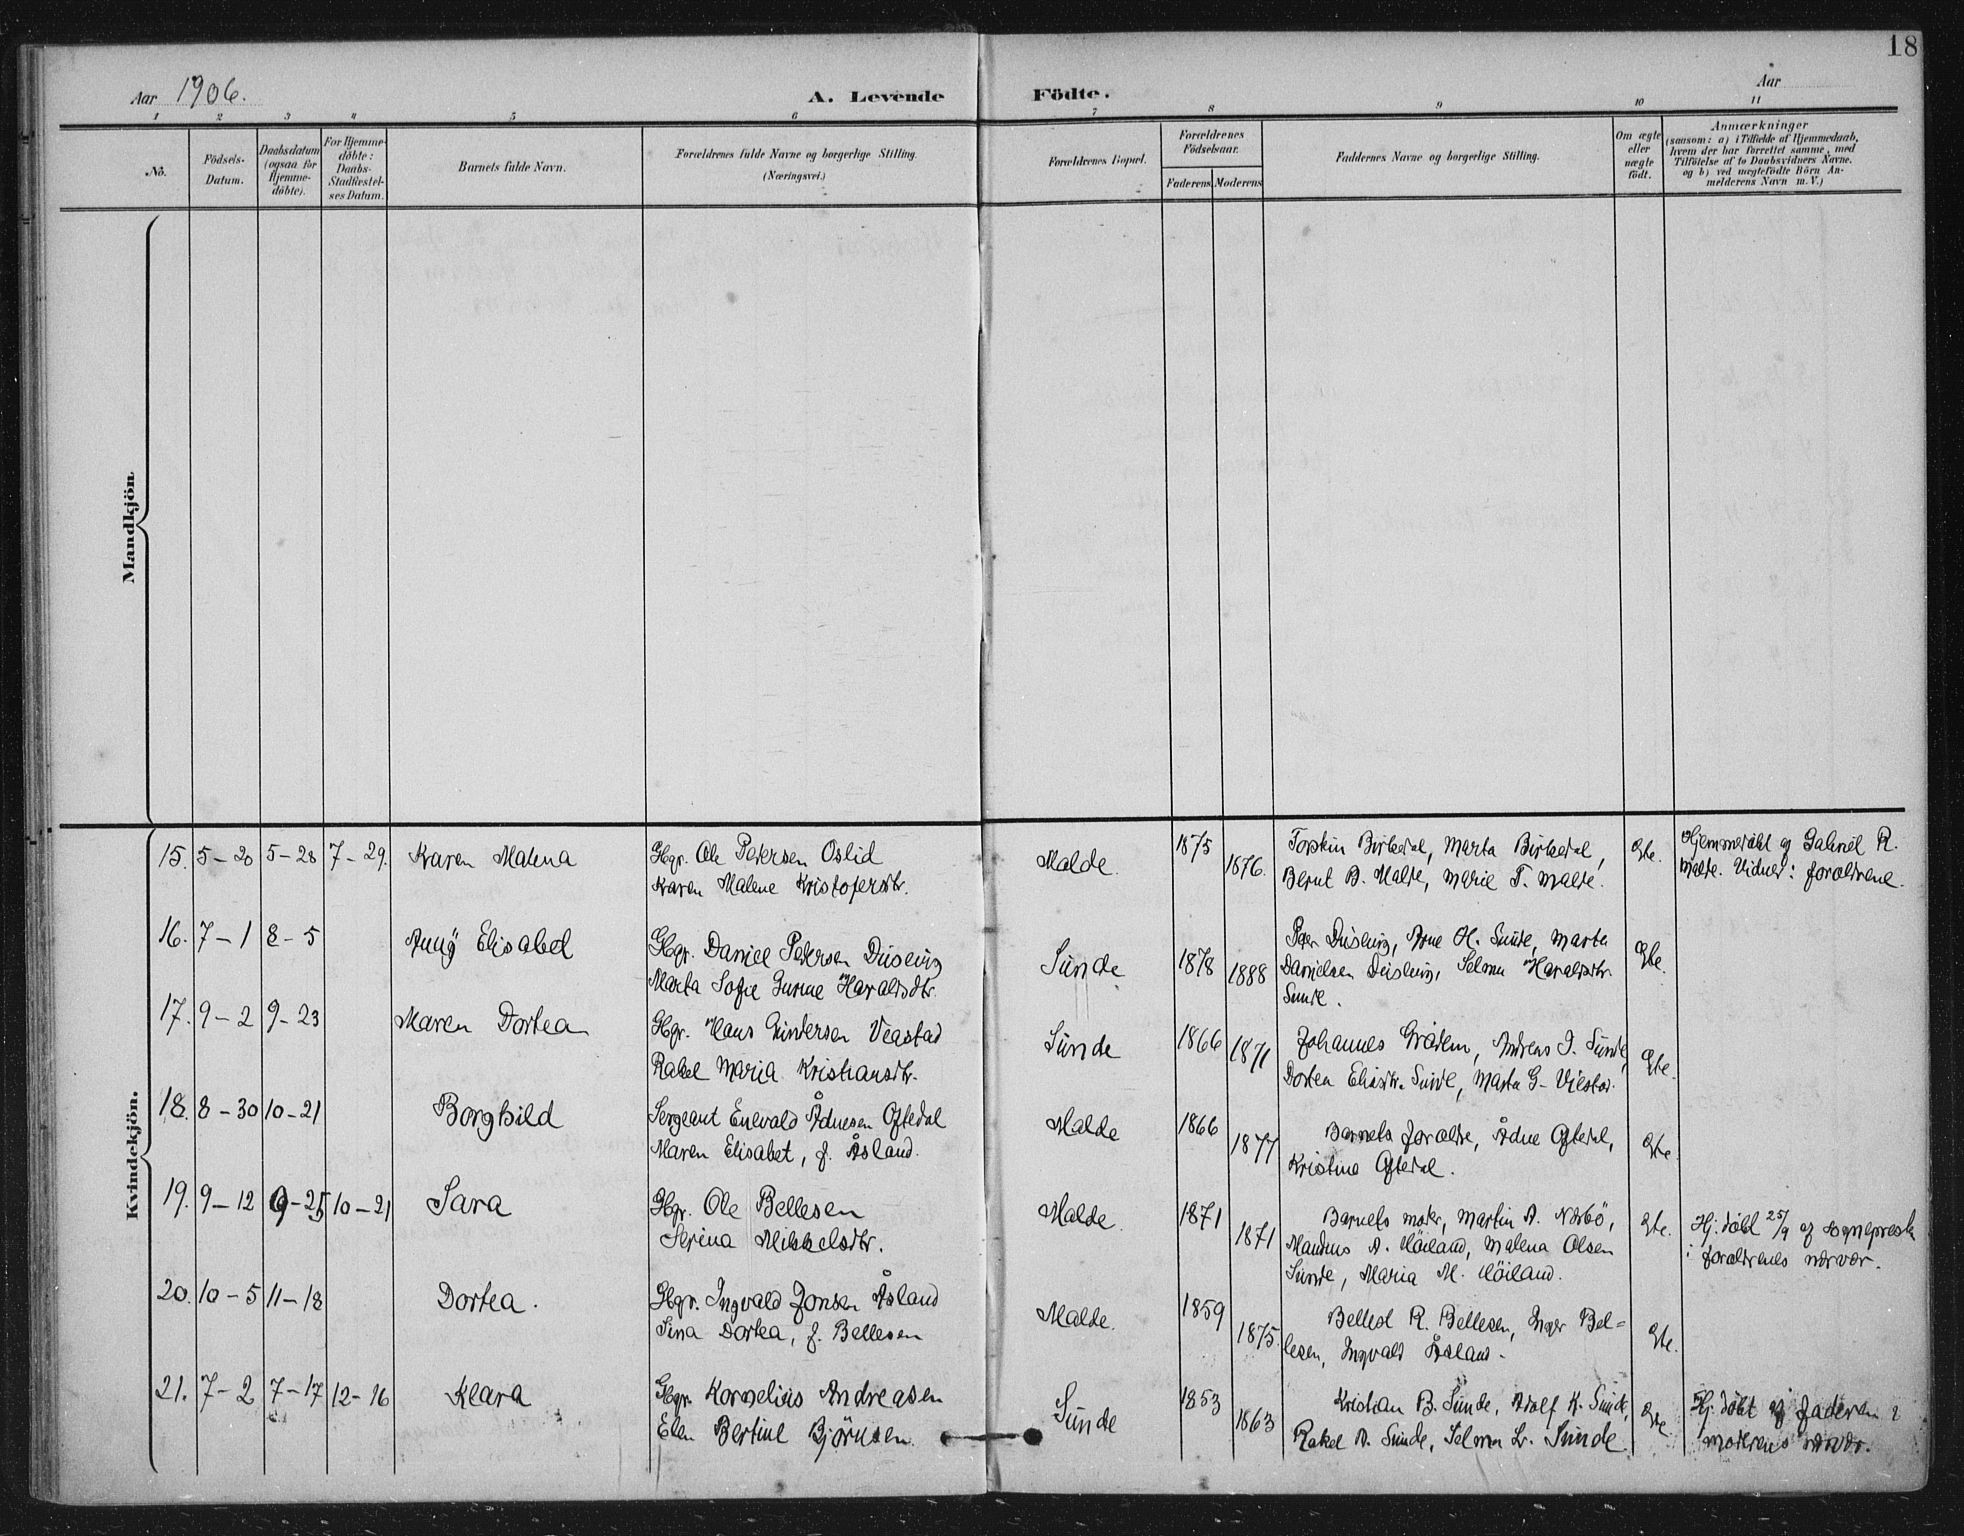 18
Aar 1906.
A. Levende Födte.
Aar
1 2 3 4 5 6 7 8 9 10 11
No.
Födsels-Datum.
Daabsdatum (ogsaa for Hjemme-döbte).
For Hjemme-döbte: Daabs-Stadfæstel-ses Datum.
Barnets fulde Navn.
Forældrenes fulde Navne og borgerlige Stilling.
(Næringsvei.)
Forældrenes Bopæl.
Forældrenes Födselsaar.
Faderens Moderens
Faddernes Navne og borgerlige Stilling.
Om ægte eller uægte födt.
Anmærkninger
(saasom: a) i Tilfælde af Hjemmedaab,
hvem der har forrettet samme, med
Tilföielse af to Daabsvidners Navne.
og b) ved uægtefödte Börn An-
melderens Navn m. V.)
Mandkjön.
Kvindekjön.
15. 5-20 5-28 7-29. Karen Malena
Gbgr. Ole Pedersen Oslid
Karen Malene Kristofersdtr.
Malde. 1875 1876.
Torkin Birkedal, Marta Birkedal,
Bernt B. Malde, Marie T. Malde.
Gte.
Hjemmedøbt af Gabriel R.
Malde. Vidner: forældrene.
16. 7-1 8-5 Anny Elisabet
Gbgr. Daniel Pedersen
Marta Sofie Gurine Haraldsdtr.
Sunde 1878 1888
Peder Arne H. Sunde, Marta
Danielsen Selma Haraldsdtr.
Sunde.
Gte.
17. 9-2 9-23 Maren Dortea
Gbgr. Hans Gundersen Vestad
Rakel Maria Kristiansdtr.
Sunde 1866 1871
Johannes Grødem, Andreas I. Sunde,
Dortea Eliasdtr. Sunde, Marta G.
Gte.
18. 8-30 10-21 Borghild
Sergeant Enevald Ådnesen Oftedal
Maren Elisabet, f. Åsland.
Malde 1866 1877
Barnets forældre, Ådne Oftedal,
Kristine Oftedal.
Gte.
19. 9-12 9-25 10-21 Sara
Gbgr. Ole Bellesen
Serina Mikkelsdtr.
Malde. 1871 1871
Barnets moder, Martin A. Nærbö,
Maudius A. Höiland, Malena Olsen
Sunde, Maria M. Höiland.
Gte.
Hj. döbt 25/9 af sogneprest
i forældrenes nærvær.
20. 10-5 11-18 Dortea.
Gbgr. Ingvald Jonsen Åsland
Sina Dortea, f. Bellesen
Malde. 1859 1875.
Bellest R. Bellesen, Inger Bel=
lesen, Ingvald Åsland.
Gte.
21. 7-2 7-17 12-16 Klara
Gbgr. Kornelius Andreasen
Elen Bertine Björnsen.
Sunde 1853 1863
Kristian B. Sunde, Adolf K. Sunde,
Rakel A. Sunde, Selma Sunde
Gte
Hj. döbt af faderen i
moderens nærvær.